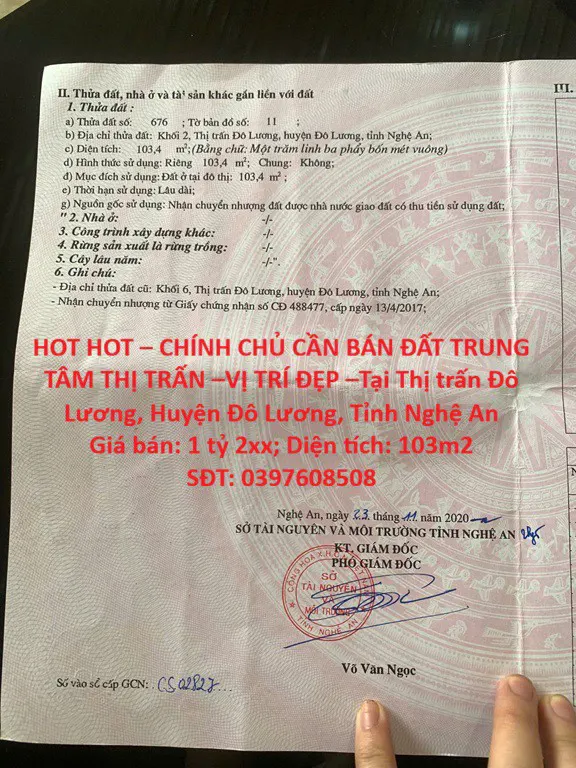 II. Thửa đất, nhà ở và tài sản khác gắn liền với đất
III.
1. Thửa đất :
a) Thửa đất số: 676 ; Tờ bản đồ số: 11 ;
b) Địa chỉ thửa đất: Khối 2, Thị trấn Đô Lương, huyện Đô Lương, tỉnh Nghệ An;
c) Diện tích: 103,4 m²; (Bằng chữ: Một trăm linh ba phẩy bốn mét vuông)
d) Hình thức sử dụng: Riêng 103,4 m²; Chung: Không;
đ) Mục đích sử dụng: Đất ở tại đô thị: 103,4 m² ;
e) Thời hạn sử dụng: Lâu dài;
g) Nguồn gốc sử dụng: Nhận chuyển nhượng đất được nhà nước giao đất có thu tiền sử dụng đất;
" 2. Nhà ở: -/-
3. Công trình xây dựng khác: -/-
4. Rừng sản xuất là rừng trồng: -/-
5. Cây lâu năm: -/-".
6. Ghi chú:
- Địa chỉ thửa đất cũ: Khối 6, Thị trấn Đô Lương, huyện Đô Lương, tỉnh Nghệ An;
- Nhận chuyển nhượng từ Giấy chứng nhận số CĐ 488477, cấp ngày 13/4/2017;
HOT HOT – CHÍNH CHỦ CẦN BÁN ĐẤT TRUNG
TÂM THỊ TRẤN –VỊ TRÍ ĐẸP –Tại Thị trấn Đô
Lương, Huyện Đô Lương, Tỉnh Nghệ An
Giá bán: 1 tỷ 2xx; Diện tích: 103m2
SĐT: 0397608508
Nghệ An, ngày 23 tháng 11 năm 2020
SỞ TÀI NGUYÊN VÀ MÔI TRƯỜNG TỈNH NGHỆ AN
KT. GIÁM ĐỐC
PHÓ GIÁM ĐỐC
SỞ
TÀI NGUYÊN
VÀ
MÔI TRƯỜNG
TỈNH NGHỆ AN
Võ Văn Ngọc
Số vào sổ cấp GCN: CS 02827